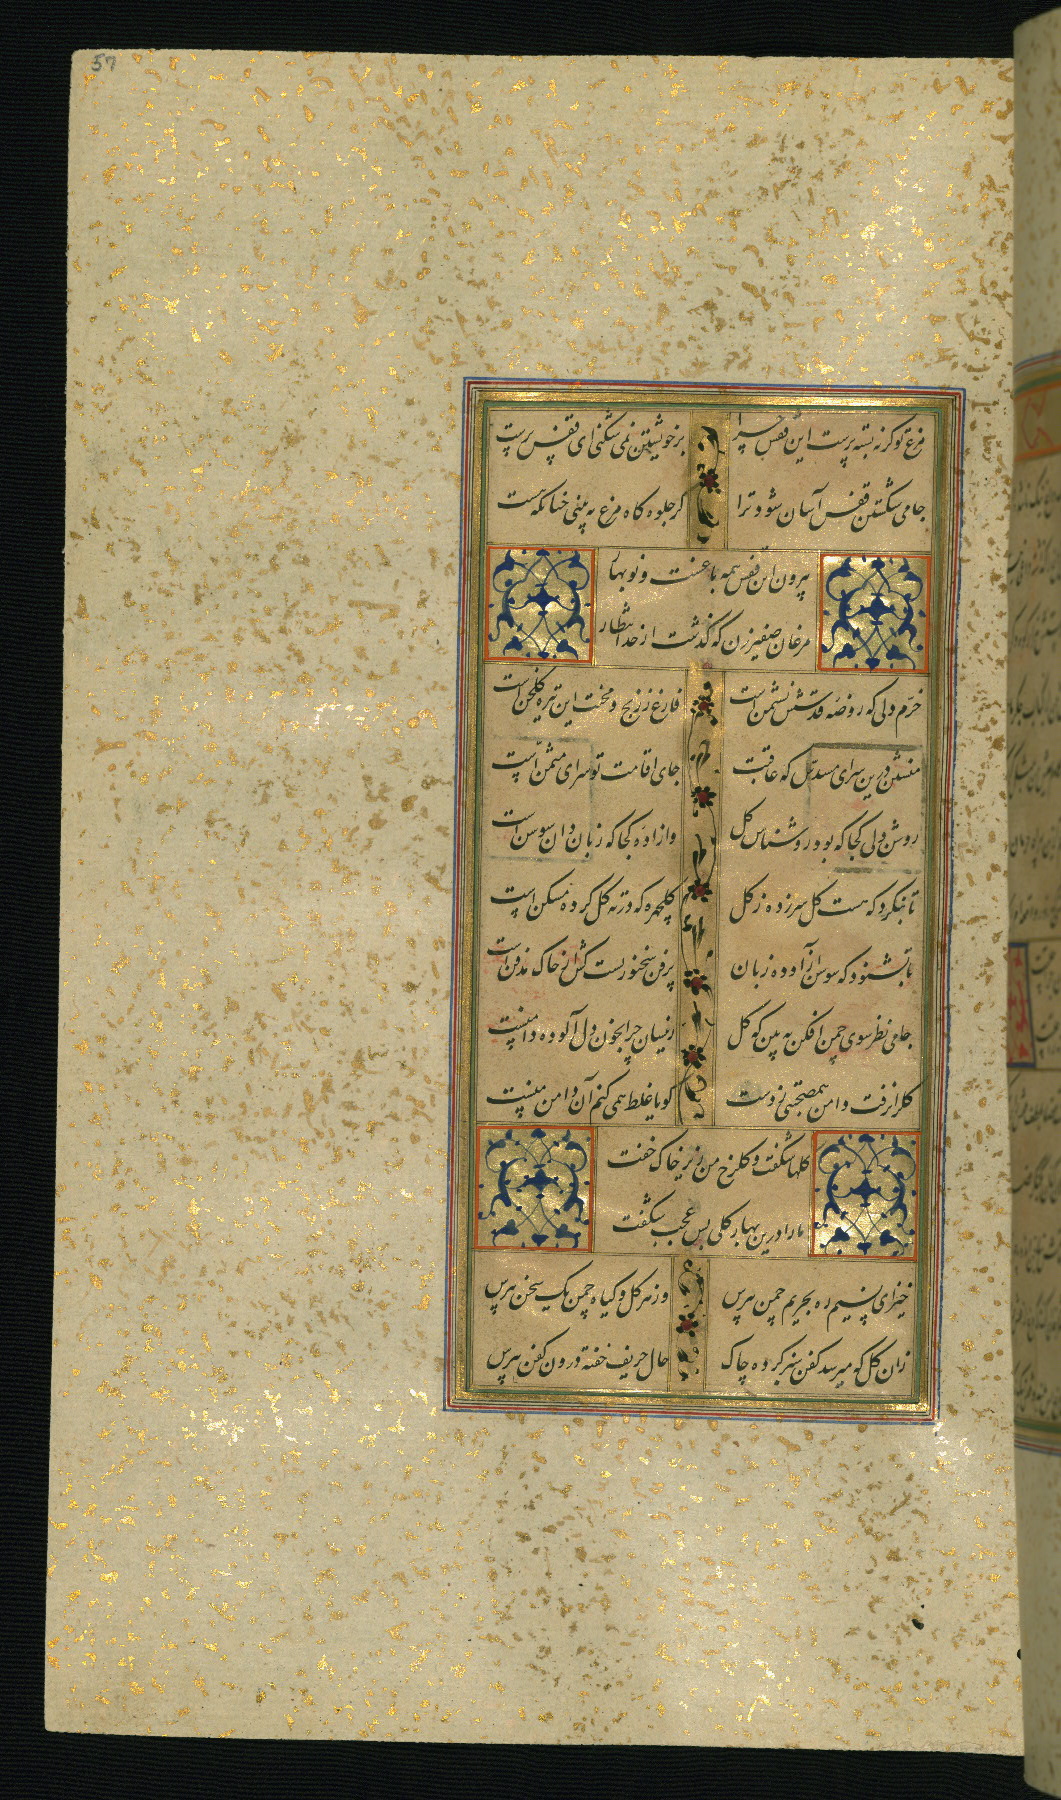 57
مرغ تو گر نه بسته پرست این قفس چرا
بر خویشتن نمی شکنی ای قفس پرست
جامی شکستن قفس آسان شود ترا
گر جلوه گاه مرغ به بینی چنانکه هست
بیرون این قفس همه باغست و نوبهار
مرغان صفیرزن که گذشت از حد انتظار
خرّم دلی که روضه قدسش نشیمن است
فارغ ز رنج و محنت این تیره گلخن است
منشین درین سرای مسدس که عاقبت
جای اقامت تو سرای مثمّن است
روشن دلی کجا که بود روشناس گل
وازاده کجا که زبان دان سوسن است
تا بنگرد که هست گل سر زده ز گل
گلچهره که در ته گل کرده مسکن است
تا بشنود که سوسن آزاده زبان
پر فن سخنوریست کش از خاک مدفن است
جامی نظر سوی چمن افکن به بین که گل
زینسان چرا بخون دل آلوده دامنیست
گلرا نرفت دامن هم صحبتی ز دست
گویا غلط همی کنم آن دامن منیست
گلها شگفت و گلرخ من زیر خاک خفت
ما را درین بهار گلی بس عجب شگفت
خیز ای نسیم ره بحریم چمن بپرس
وز هر گل و گیاه چمن یک سخن بپرس
زان گل که میرسد کفن سبز کرده چاک
حال حریف خفته درون کفن بپرس